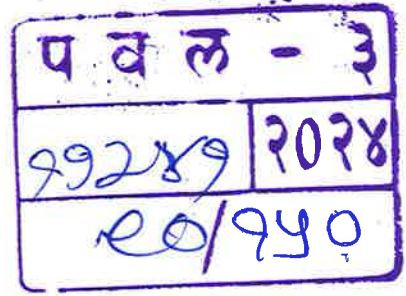 पवल - ३
११२४१ २०२४
९०/१५०